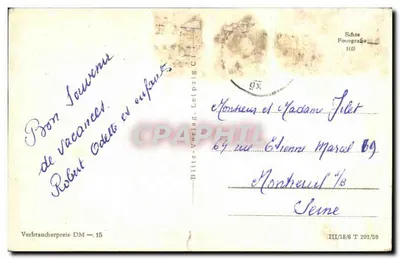 Bon Souvenir
de vacances.
Robert Odette et enfants
Echte
Fotografie
Bild-Verlag, Leipzig C
Monsieur et Madame
67 rue Etienne Marcel
Montreuil s/B
Seine
Verbraucherpreis DM —.15
III/18/6 T 201/59
CPAPHIL